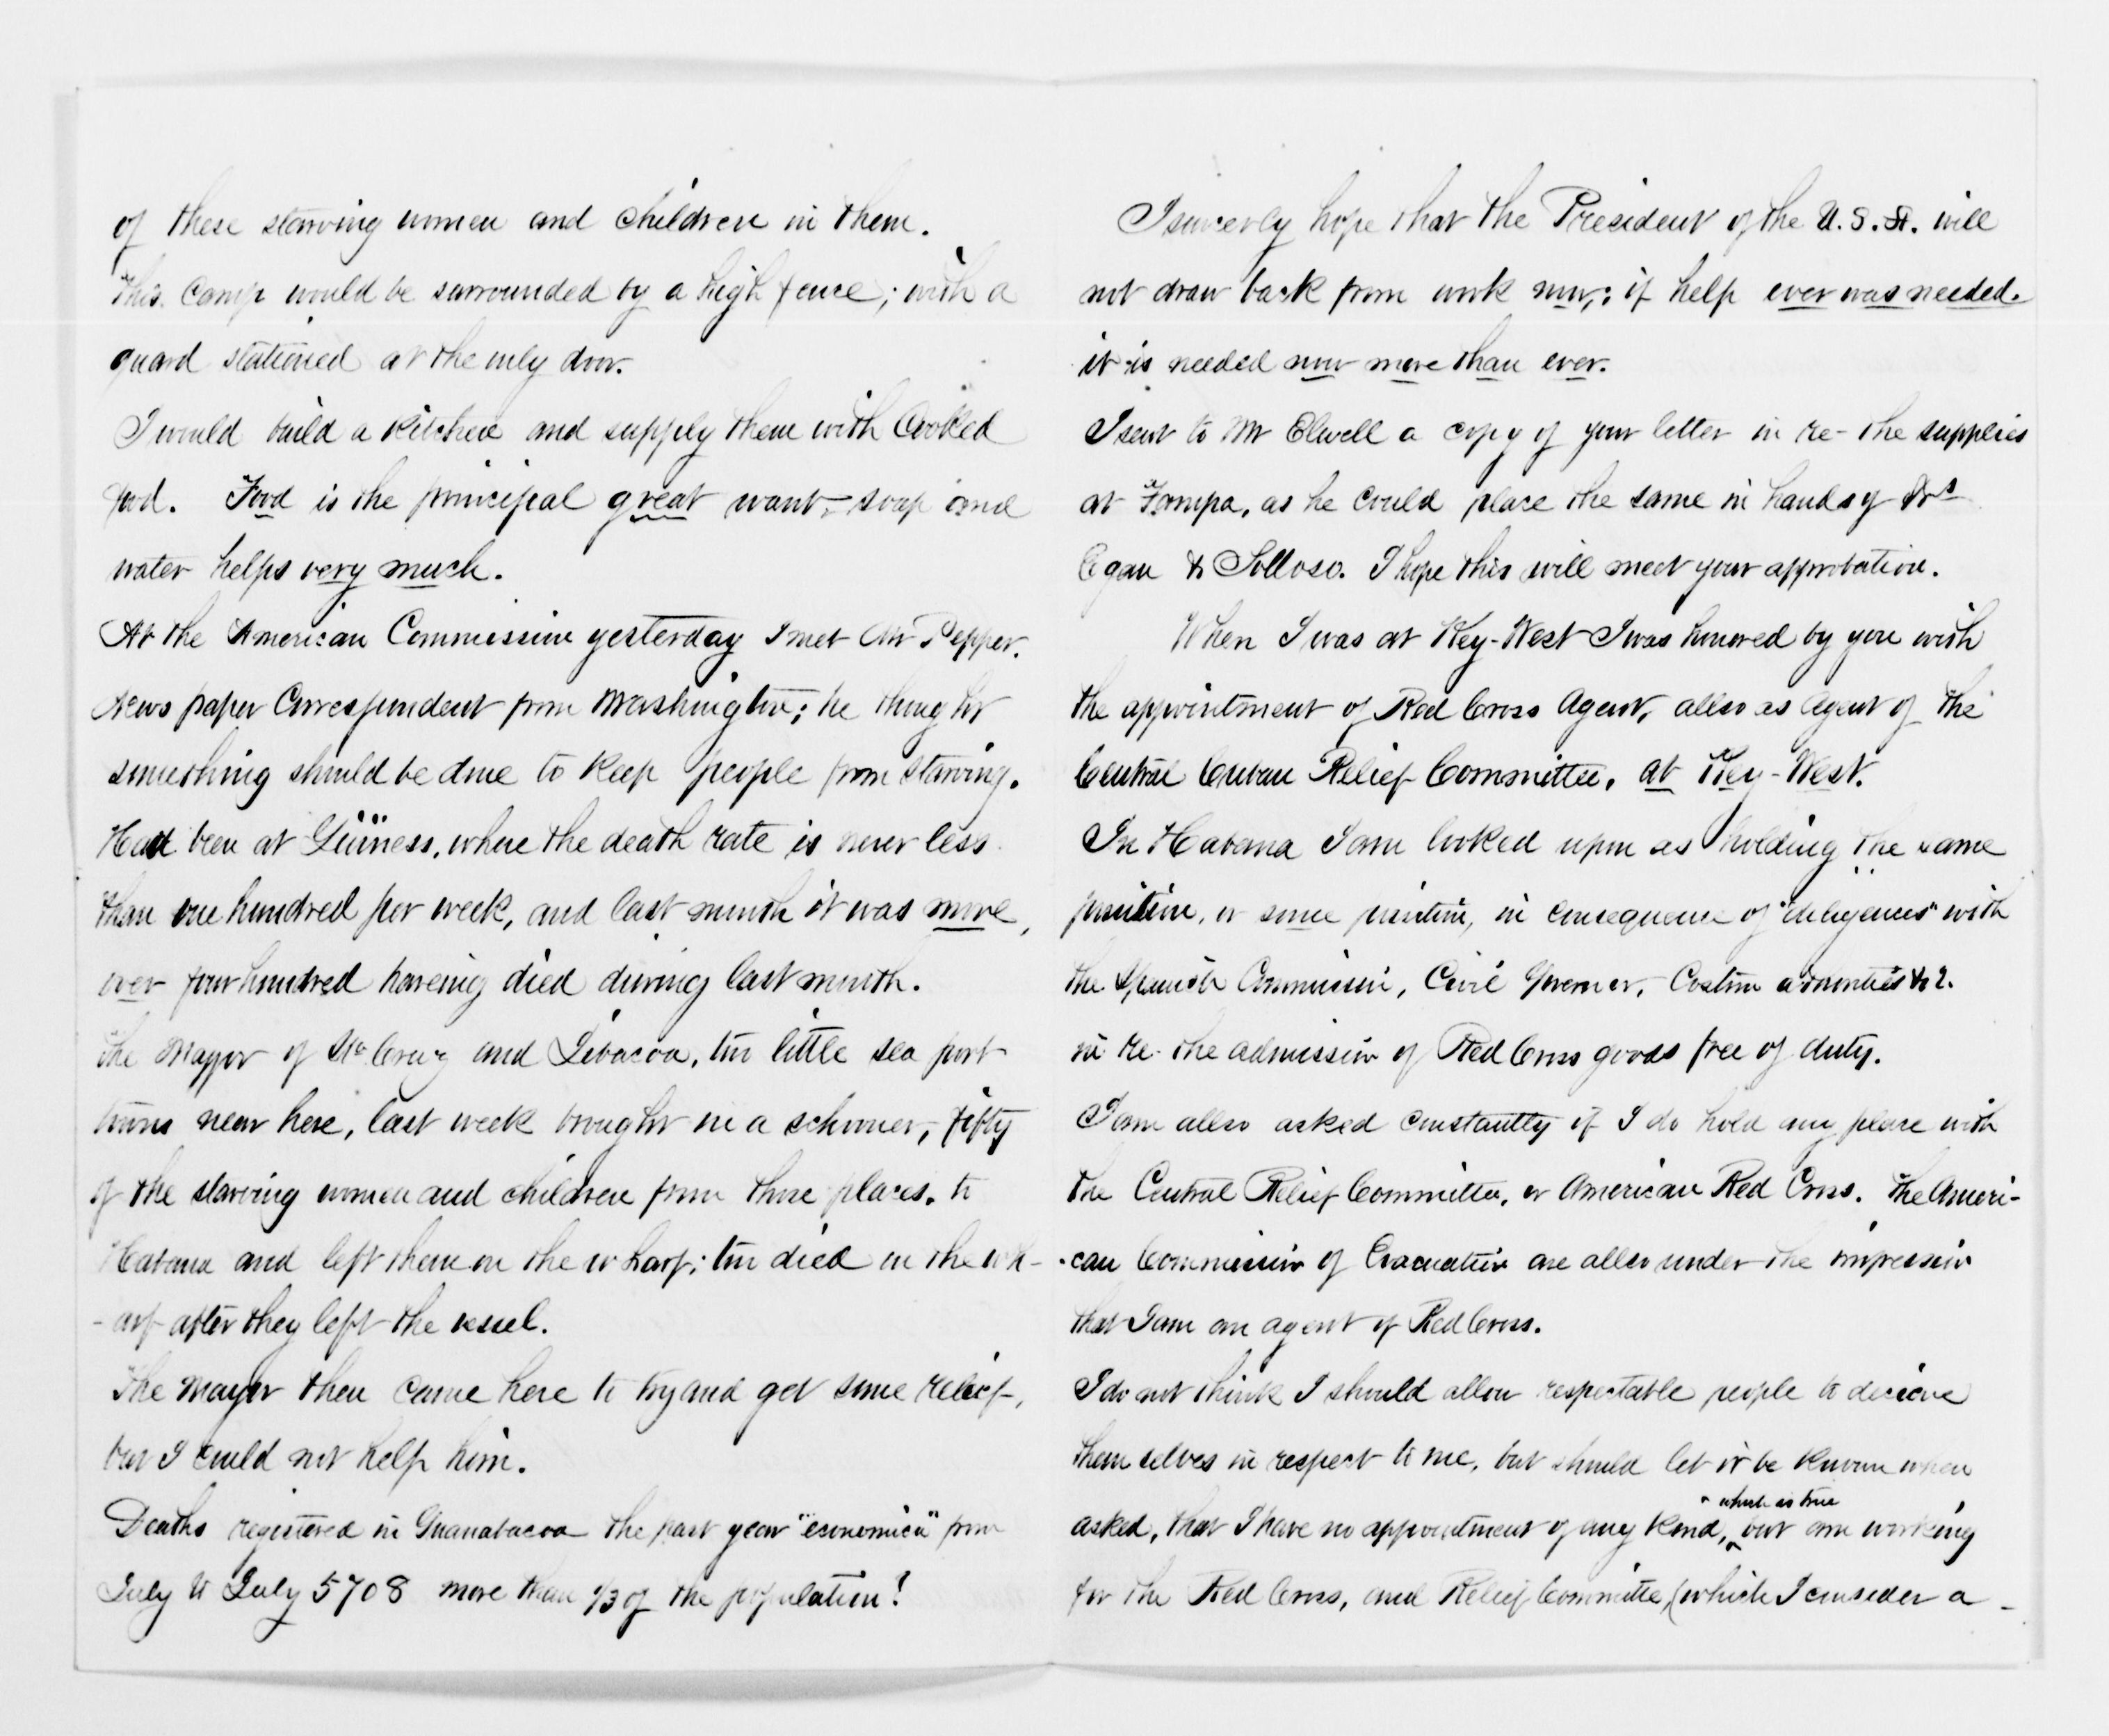 of these starving women and children in them.
This camp would be surrounded by a high fence; with a
guard stationed at the only door.
I would build a kitchen and supply them with Cooked
food. Food is the principal great want, soap and
water helps very much.
At the American Commission yesterday I met Mr Pepper.
News paper Correspondent from Washington; he thought
something should be done to keep people from starving.
Had been at Güiness, where the death rate is never less
than one hundred per week, and last month it was more,
over four hundred haveing died during last month.
The Mayor of Sta Cruz and Jibacoa, two little sea port
towns near here, last week brought in a schooner, fifty
of the starving women and children from those places, to
Habana and left them on the wharf; two died on the wh-
-arf after they left the vessel.
The mayor then came here to try and get some relief,
but I could not help him.
Deaths registered in Guanabacoa the past year "economica" from
July to July 5708 more than 1/3 of the population!
I sincerly hope that the President of the U.S.A. will
not draw back from work now; if help ever was needed.
it is needed now more than ever.
I sent to Mr Elwell a copy of your letter in re- the supplies
at Tampa, as he could place the same in hands of Drs
Egan & Solloso. I hope this will meet your approbation.
When I was at Key-West I was honored by you with
the appointment of Red Cross Agent, allso as Agent of the
Central Cuban Relief Committee, at Key-West.
In Habana I am looked upon as holding the same
position, or some position, in consequence of "diligences" with
the Spanish Commission, Civil Governor, Custom authorities &c.
in re- the admission of Red Cross goods free of duty.
I am allso asked constantly if I do hold any place with
the Central Relief Committee, or American Red Cross. The Ameri-
-can Commission of Evacuation are allso under the impression
that I am an agent of Red Cross.
I do not think I should allow respectable people to decieve
themselves in respect to me, but should let it be known when
asked, that I have no appointment of any kind, which is true but am working
for the Red Cross, and Relief Committe, (which I consider a